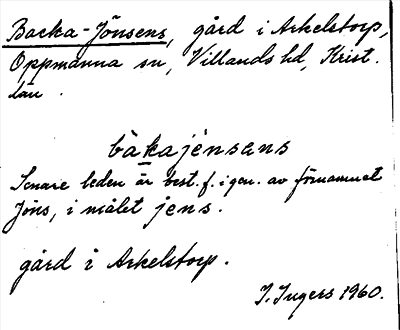 Backa-Jönsens, gård i Arkelstorp,
Oppmanna sn, Villands hd, Krist.
län.
bàkajènsens
Senare leden är best. f. i gen. av förnamnet
Jöns, i målet jens.
gård i Arkelstorp.
I. Ingers 1960.